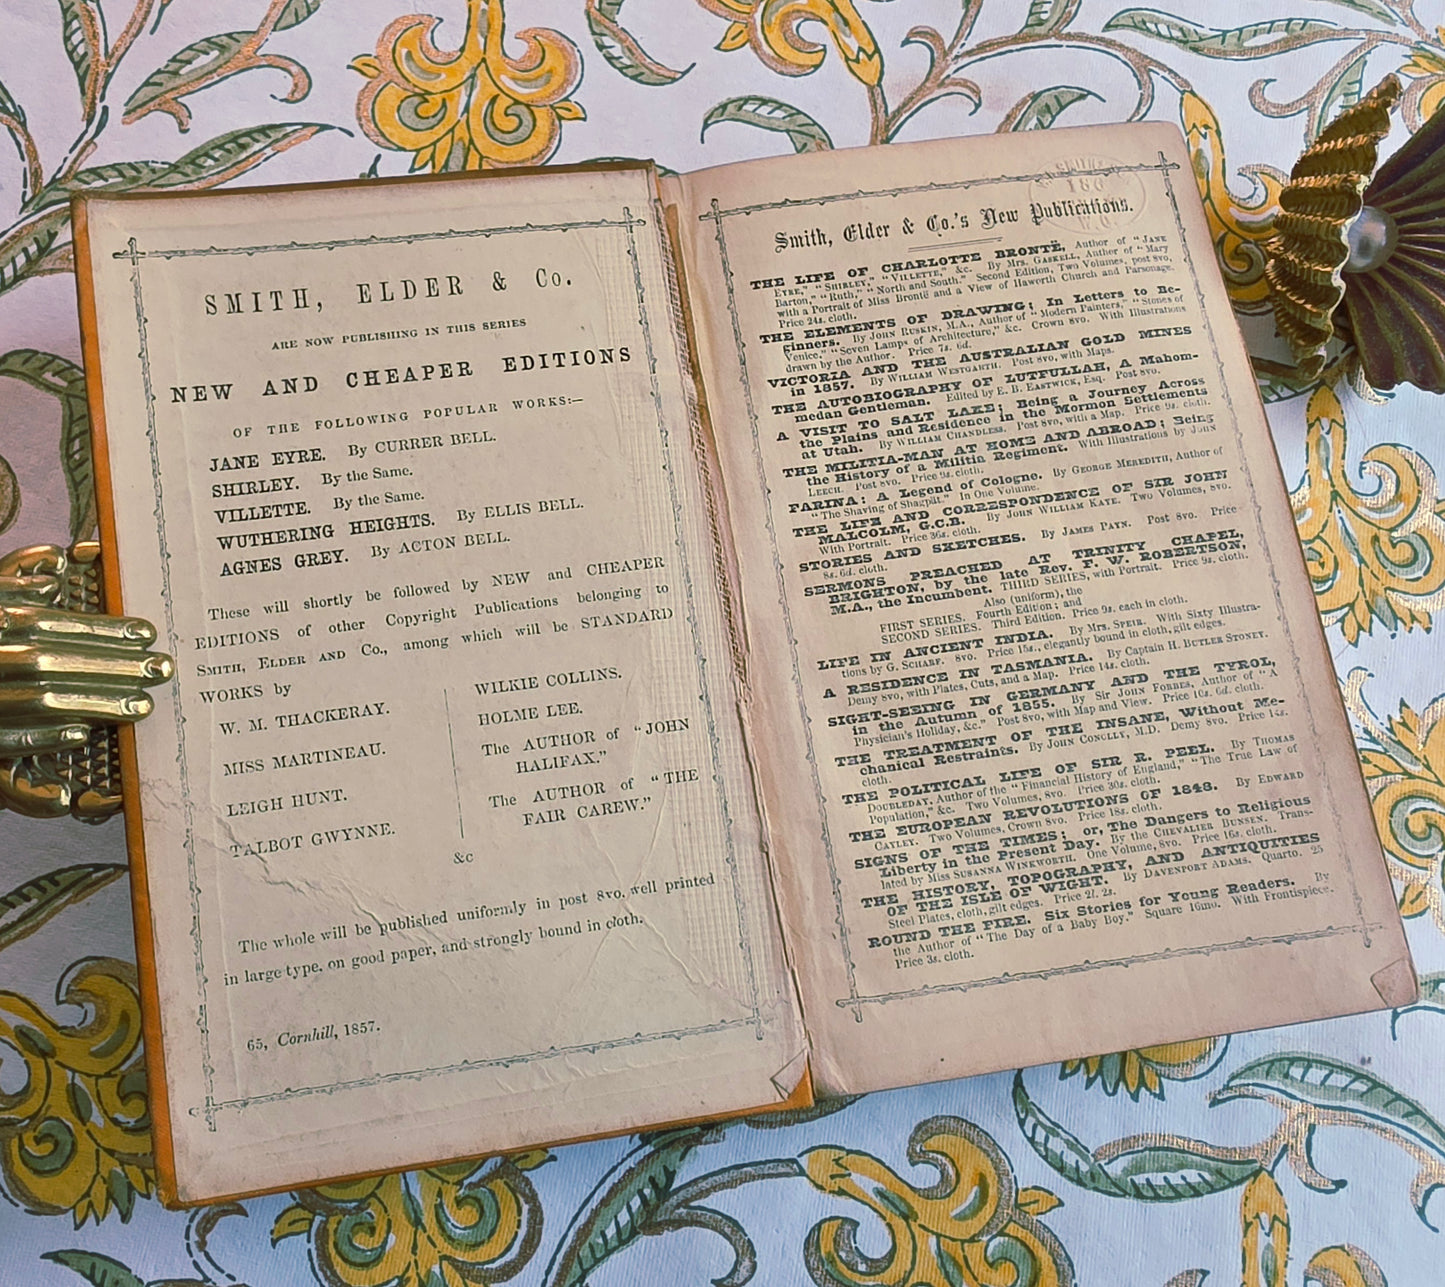 SMITH, ELDER & Co.
ARE NOW PUBLISHING IN THIS SERIES
NEW AND CHEAPER EDITIONS
OF THE FOLLOWING POPULAR WORKS:—
JANE EYRE. By CURRER BELL.
SHIRLEY. By the Same.
VILLETTE. By the Same.
WUTHERING HEIGHTS. By ELLIS BELL.
AGNES GREY. By ACTON BELL.
These will shortly be followed by NEW and CHEAPER
EDITIONS of other Copyright Publications belonging to
SMITH, ELDER AND Co., among which will be STANDARD
WORKS by
W. M. THACKERAY.
MISS MARTINEAU.
LEIGH HUNT.
TALBOT GWYNNE.
WILKIE COLLINS.
HOLME LEE.
The AUTHOR of "JOHN
HALIFAX."
The AUTHOR of "THE
FAIR CAREW."
&c
The whole will be published uniformly in post 8vo, well printed
in large type, on good paper, and strongly bound in cloth.
65, Cornhill, 1857.
Smith, Elder & Co.'s New Publications.
THE LIFE OF CHARLOTTE BRONTË, Author of "JANE
EYRE," "SHIRLEY," "VILLETTE," &c. By MRS. GASKELL, Author of "Mary
Barton," "Ruth," "North and South." Second Edition, Two Volumes, post 8vo,
with a Portrait of Miss Brontë and a View of Haworth Church and Parsonage.
Price 24s. cloth.
THE ELEMENTS OF DRAWING; In Letters to Be-
ginners. By JOHN RUSKIN, M.A., Author of "Modern Painters," "Stones of
Venice," "Seven Lamps of Architecture," &c. Crown 8vo. With Illustrations
drawn by the Author. Price 7s. 6d.
VICTORIA AND THE AUSTRALIAN GOLD MINES
in 1857. By WILLIAM WESTGARTH. Post 8vo, with Maps.
THE AUTOBIOGRAPHY OF LUTFULLAH, A Mahom-
medan Gentleman. Edited by E. B. EASTWICK, Esq. Post 8vo.
A VISIT TO SALT LAKE; Being a Journey Across
the Plains and Residence in the Mormon Settlements
at Utah. By WILLIAM CHANDLESS. Post 8vo, with a Map. Price 9s. cloth.
THE MILITIA-MAN AT HOME AND ABROAD; Being
the History of a Militia Regiment. With Illustrations by JOHN
LEECH. Post 8vo. Price 9s. cloth.
FARINA: A Legend of Cologne. By GEORGE MEREDITH, Author of
"The Shaving of Shagpat." In One Volume.
THE LIFE AND CORRESPONDENCE OF SIR JOHN
MALCOLM, G.C.B. By JOHN WILLIAM KAYE. Two Volumes, 8vo.
With Portrait. Price 36s. cloth.
STORIES AND SKETCHES. By JAMES PAYN. Post 8vo. Price
8s. 6d. cloth.
SERMONS PREACHED AT TRINITY CHAPEL,
BRIGHTON, by the late Rev. F. W. ROBERTSON,
M.A., the Incumbent. THIRD SERIES, with Portrait. Price 9s. cloth.
Also (uniform), the
FIRST SERIES. Fourth Edition; and
SECOND SERIES. Third Edition. Price 9s. each in cloth.
LIFE IN ANCIENT INDIA. By MRS. SPEIR. With Sixty Illustra-
tions by G. SCHARF. 8vo. Price 15s., elegantly bound in cloth, gilt edges.
A RESIDENCE IN TASMANIA. By Captain H. BUTLER STONEY.
Demy 8vo, with Plates, Cuts, and a Map. Price 14s. cloth.
SIGHT-SEEING IN GERMANY AND THE TYROL,
in the Autumn of 1855. By Sir JOHN FORBES, Author of "A
Physician's Holiday, &c." Post 8vo, with Map and View. Price 10s. 6d. cloth.
THE TREATMENT OF THE INSANE, Without Me-
chanical Restraints. By JOHN CONOLLY, M.D. Demy 8vo. Price 14s.
cloth.
THE POLITICAL LIFE OF SIR R. PEEL. By THOMAS
DOUBLEDAY, Author of the "Financial History of England," "The True Law of
Population," &c. Two Volumes, 8vo. Price 30s. cloth.
THE EUROPEAN REVOLUTIONS OF 1848. By EDWARD
CAYLEY. Two Volumes, Crown 8vo. Price 18s. cloth.
SIGNS OF THE TIMES; or, The Dangers to Religious
Liberty in the Present Day. By the CHEVALIER BUNSEN. Trans-
lated by Miss SUSANNA WINKWORTH. One Volume, 8vo. Price 16s. cloth.
THE HISTORY, TOPOGRAPHY, AND ANTIQUITIES
OF THE ISLE OF WIGHT. By DAVENPORT ADAMS. Quarto. 25
Steel Plates, cloth, gilt edges. Price 2l. 2s.
ROUND THE FIRE. Six Stories for Young Readers. By
the Author of "The Day of a Baby Boy." Square 16mo. With Frontispiece.
Price 3s. cloth.